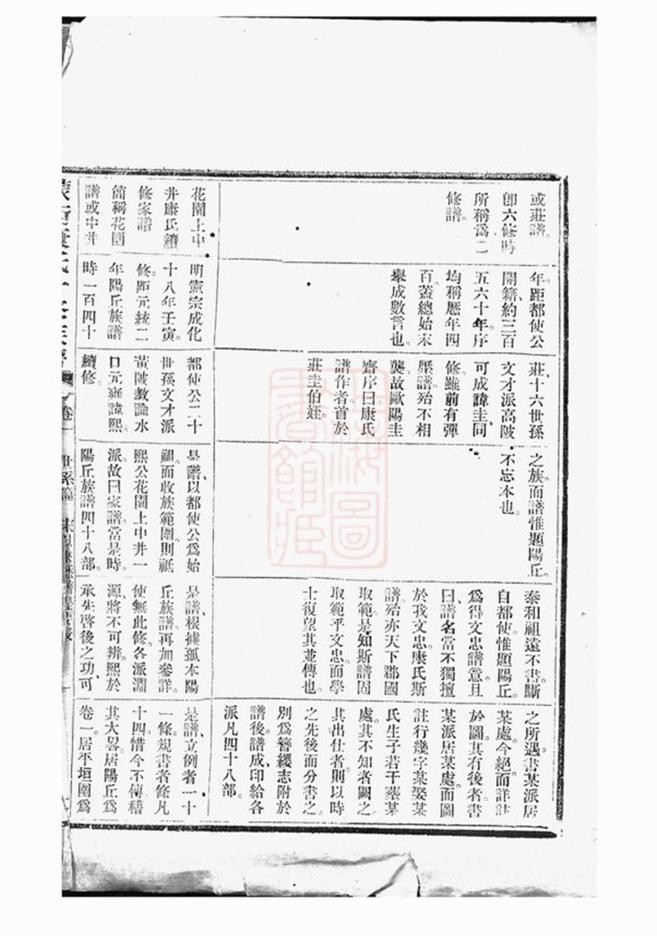 或莊譜。
卽六修時
所稱爲二
修譜。
年。距都使公
開籍、約三百
五六十年。序
均稱歷年四
百蓋總始末
舉成數言也。
莊、十六世孫
文才派高陂
可成諱圭、同
修雖前有彈
壓譜殆不相
襲故歐陽圭
齋序曰康氏
譜作者首於
莊圭伯姪。
之族而譜惟題陽丘
不忘本也。
泰和祖遠不書斷
自都使惟題陽丘。
爲得文忠譜意且
曰譜名當不獨擅
於我文忠康氏斯
譜殆亦天下郡國
取範是知斯譜固
取範乎文忠而學
士復望其並傳也。
之所遇書某派居
某處今絕而詳註
於圖其有後者書
某派居某處而圖
註行幾字某娶某
氏生子若干葬某
處其不知者闕之
其出仕者則以時
之先後而分書之
別爲簪纓志附於
譜後譜成印給各
派凡四十八部。
花園上中
井康氏續
修家譜
簡稱花園
譜或中井
明憲宗成化
十八年壬寅
修距元統二
年陽丘族譜
時一百四十
都使公二十
世孫文才派
黃陂教諭水
口元雍諱熙
續修。
是譜、以都使公爲始
祖而收族範圍則祗
熙公花園上中井一
派故曰家譜當是時
陽丘族譜四十八部。
是譜、根據孤本陽
丘族譜再加參詳。
使無此修各派淵
源將不可辨熙於
承先啓後之功可
是譜、立例者一十
一條規書者條凡
十四惜今不傳稽
其大畧居陽丘爲
卷一居平垣圍爲
卷一
世系篇